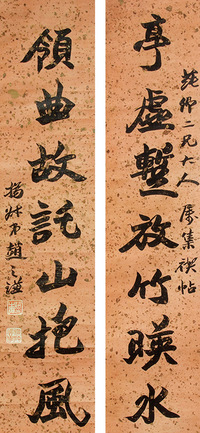 亭虛暫放竹暎水
領曲故託山抱風
二兄大人屬集禊帖
撝叔弟趙之謙